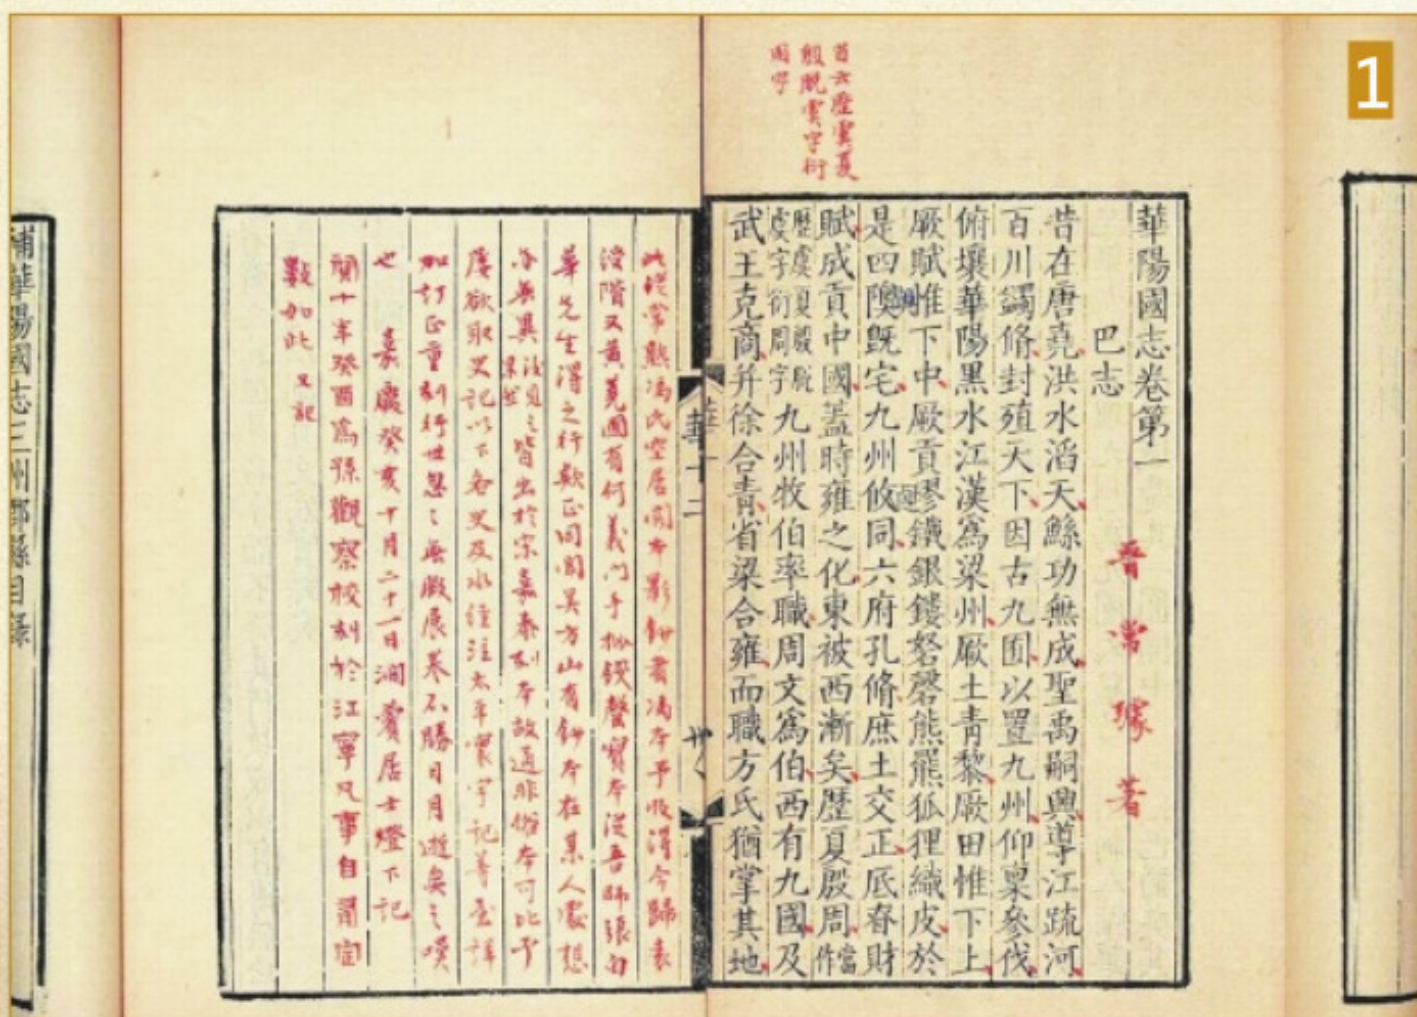 1
首云歷虞夏
殷脫虞字衍
周字
華陽國志卷第一
巴志 晉常璩著
昔在唐堯洪水滔天鯀功無成聖禹嗣興導江疏河
百川蠲脩封殖天下因古九囿以置九州仰稟參伐
俯壤華陽黑水江漢為梁州厥土青黎厥田惟下上
厥賦惟下中厥貢璆鐵銀鏤砮磬熊羆狐狸織皮於
是四隩既宅九州攸同六府孔脩庶土交正厎眘財
賦成貢中國蓋時雍之化東被西漸矣歷夏殷周當作
歷虞夏殷脫虞字衍周字九州牧伯率職周文為伯西有九國及
武王克商并徐合青省梁合雍而職方氏猶掌其地
華一
華十二
此從常熟馮氏空居閣本影鈔者馮本予收得今歸袁
綬階又黃蕘圃有何義門手校錢罄室本從吾師張白
華先生得之行款正同聞吳方山有鈔本在某人處想
亦無異後見之果然皆出於宋嘉泰刻本故遠非俗本可比予
屢欲取史記以下各史及水經注太平寰宇記等書詳
加訂正重刻行世忽〻無暇展卷不勝日月逝矣之嘆
也 嘉慶癸亥十月二十一日澗薲居士燈下記
閱十年癸酉為孫觀察校刻於江寧凡事自有定
數如此 又記
補華陽國志三州郡縣目錄